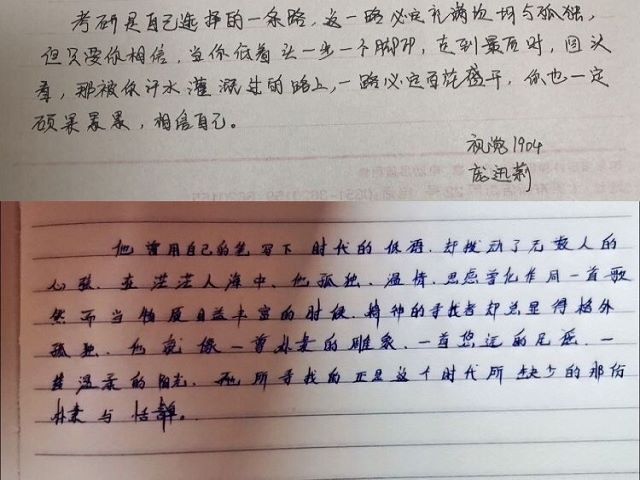 考研是自己选择的一条路，这一路必定充满坎坷与孤独，
但只要你相信，当你低着头一步一个脚印，走到最后时，回头
看，那被你汗水灌溉过的路上，一路必定百花盛开，你也一定
硕果累累，相信自己。
视觉1904
庞迅莉
他曾用自己的笔写下时代的低语，却拨动了无数人的
心弦。在茫茫人海中，他孤独、温情，思虑学化作同一首歌
然而当物质日益丰富的时候，精神的寻找者却总显得格外
孤独。他就像一尊朴素的雕象，一首悠远的尼瑟，一
楚温柔的阳光，而他所寻找的正是这个时代所缺少的那份
朴素与恬静。